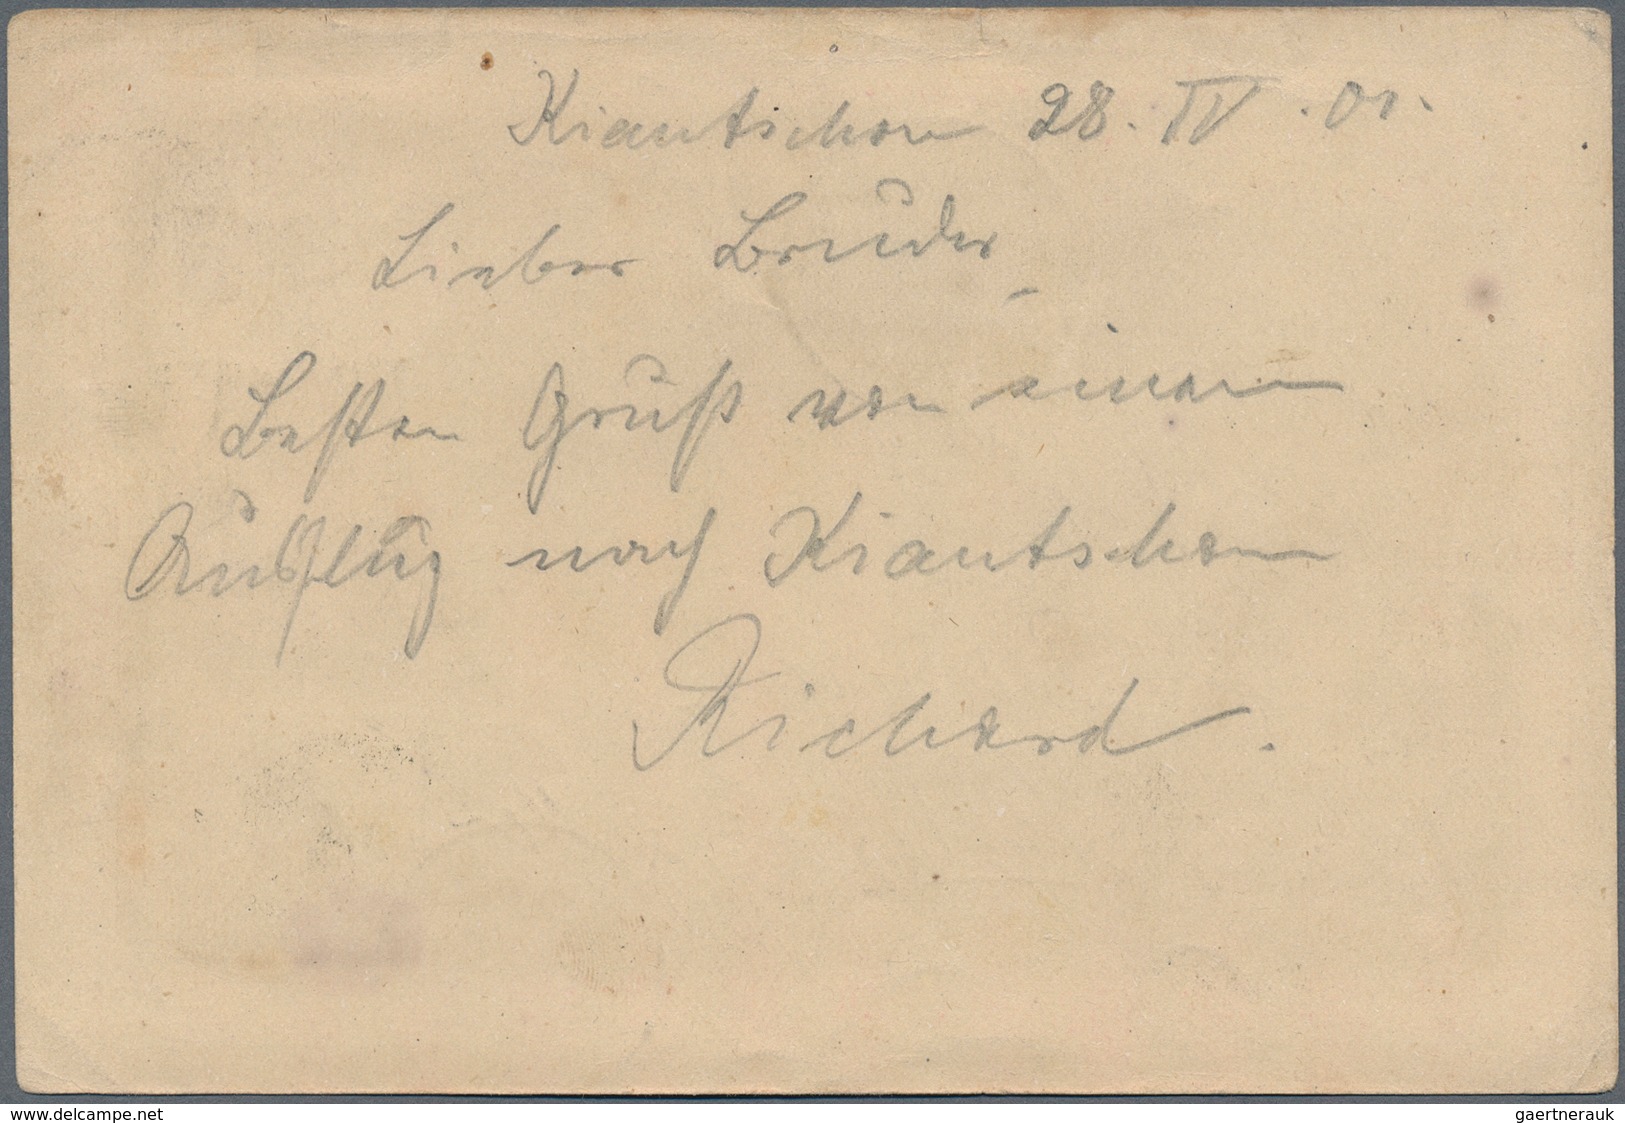 Kiautschou 28. IV. 01.
Lieber Bruder,
Besten Gruß von einem
Ausflug nach Kiautschou
Richard.
www.delcampe.net
gaertnerauk